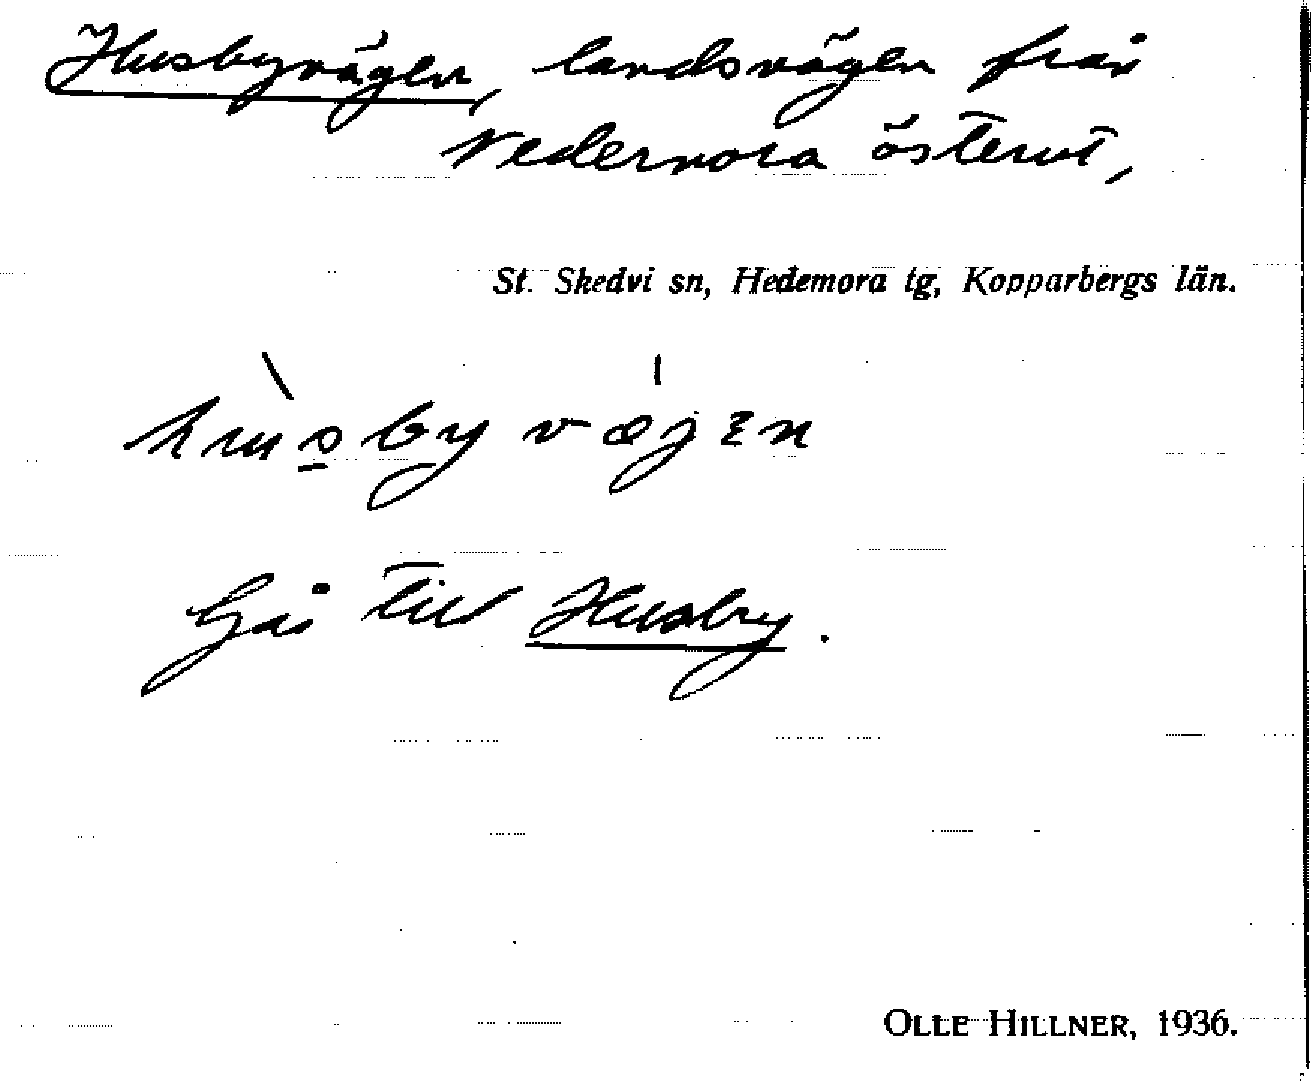 Husbyvägen, landsvägen från
Nedernora österut,
St. Skedvi sn, Hedemora tg, Kopparbergs län.
husby væjen
Går till Husby.
OLLE HILLNER, 1936.